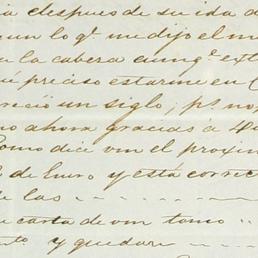 ia despues de su ida a
un lo q.e me dijo el m
la cabeza aunq.e ext
preciso estarme en C
reció un siglo; p.o no
no ahora gracias á Di
Como dice vm el proxim
de Enero y está correc
de las - - - - - -
carta de vm tomo
to y quedar - - -